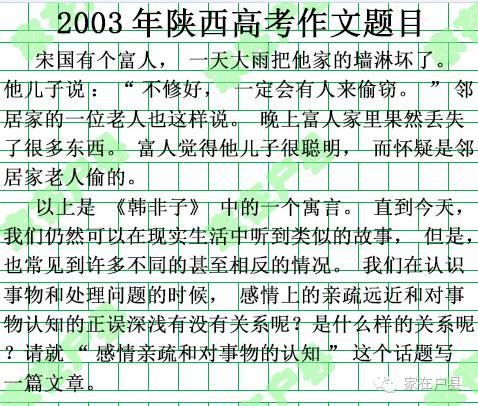 2003年陕西高考作文题目
宋国有个富人， 一天大雨把他家的墙淋坏了。
他儿子说：“ 不修好， 一定会有人来偷窃。 ”邻
居家的一位老人也这样说。 晚上富人家里果然丢失
了很多东西。 富人觉得他儿子很聪明， 而怀疑是邻
居家老人偷的。
以上是 《韩非子》 中的一个寓言。 直到今天，
我们仍然可以在现实生活中听到类似的故事， 但是，
也常见到许多不同的甚至相反的情况。 我们在认识
事物和处理问题的时候， 感情上的亲疏远近和对事
物认知的正误深浅有没有关系呢？是什么样的关系呢
？请就 “ 感情亲疏和对事物的认知 ” 这个话题写
一篇文章。
家在户县
家在户县
家在户县
家在户县
家在户县